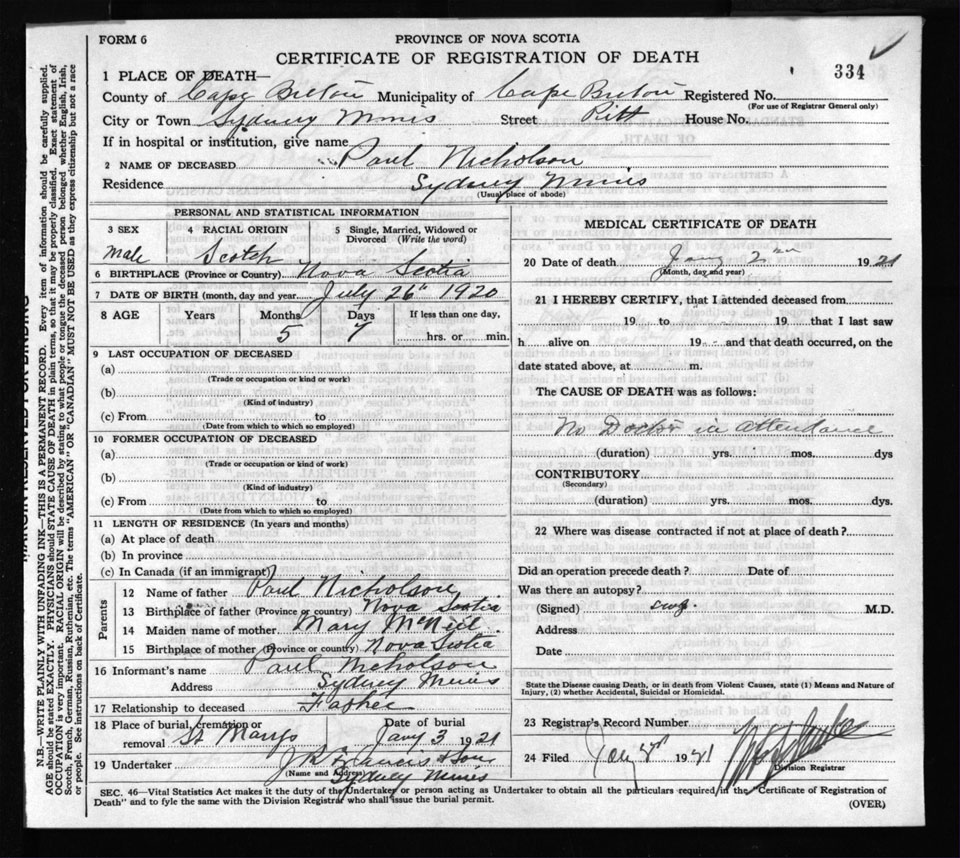 FORM 6
PROVINCE OF NOVA SCOTIA
CERTIFICATE OF REGISTRATION OF DEATH
334
1 PLACE OF DEATH—
County of Cape Breton Municipality of Cape Breton Registered No.
(For use of Registrar General only)
City or Town Sydney Mines Street Pitt House No.
If in hospital or institution, give name
2 NAME OF DECEASED Paul Nicholson
Residence Sydney Mines
(Usual place of abode)
PERSONAL AND STATISTICAL INFORMATION
3 SEX
male
4 RACIAL ORIGIN
Scotch
5 Single, Married, Widowed or Divorced (Write the word)
6 BIRTHPLACE (Province or Country) Nova Scotia
7 DATE OF BIRTH (month, day and year July 26th 1920
8 AGE Years Months Days If less than one day,
5 7 hrs. or min.
9 LAST OCCUPATION OF DECEASED
(a)
(Trade or occupation or kind or work)
(b)
(Kind of industry)
(c) From to
(Date from which to which so employed)
10 FORMER OCCUPATION OF DECEASED
(a)
(Trade or occupation or kind or work)
(b)
(Kind of industry)
(c) From to
(Date from which to which so employed)
11 LENGTH OF RESIDENCE (In years and months)
(a) At place of death
(b) In province
(c) In Canada (if an immigrant)
Parents
12 Name of father Paul Nicholson
13 Birthplace of father (Province or country) Nova Scotia
14 Maiden name of mother Mary McNeil
15 Birthplace of mother (Province or country) Nova Scotia
16 Informant's name Paul Nicholson
Address Sydney Mines
17 Relationship to deceased Father
18 Place of burial, cremation or removal St Marys Date of burial Jany 3 1921
19 Undertaker & Son
(Name and Address) Sydney Mines
MEDICAL CERTIFICATE OF DEATH
20 Date of death Jany 2 1921
(Month, day and year)
21 I HEREBY CERTIFY, that I attended deceased from
19 to 19 that I last saw
h alive on 19 and that death occurred, on the
date stated above, at m.
The CAUSE OF DEATH was as follows:
No Doctor in attendance
(duration) yrs. mos. dys
CONTRIBUTORY
(Secondary)
(duration) yrs. mos. dys.
22 Where was disease contracted if not at place of death?
Did an operation precede death? Date of
Was there an autopsy?
(Signed) M.D.
Address
Date
State the Disease causing Death, or in death from Violent Causes, state (1) Means and Nature of
Injury, (2) whether Accidental, Suicidal or Homicidal.
23 Registrar's Record Number
24 Filed 1921
Division Registrar
SEC. 46—Vital Statistics Act makes it the duty of the Undertaker or person acting as Undertaker to obtain all the particulars required in the "Certificate of Registration of
Death" and to fyle the same with the Division Registrar who shall issue the burial permit.
(OVER)
MARGIN RESERVED FOR BINDING
N.B.—WRITE PLAINLY WITH UNFADING INK—THIS IS A PERMANENT RECORD. Every item of information should be carefully supplied.
AGE should be stated EXACTLY. PHYSICIANS should STATE CAUSE OF DEATH in plain terms, so that it may be properly classified. Exact statement of
OCCUPATION is very important. RACIAL ORIGIN will be described by stating to what people or tongue the deceased person belonged whether English, Irish,
Scotch, French, German, Russian, Ruthenian, etc. The terms "AMERICAN" OR "CANADIAN" MUST NOT BE USED as they express citizenship but not a race
or people. See instructions on back of Certificate.